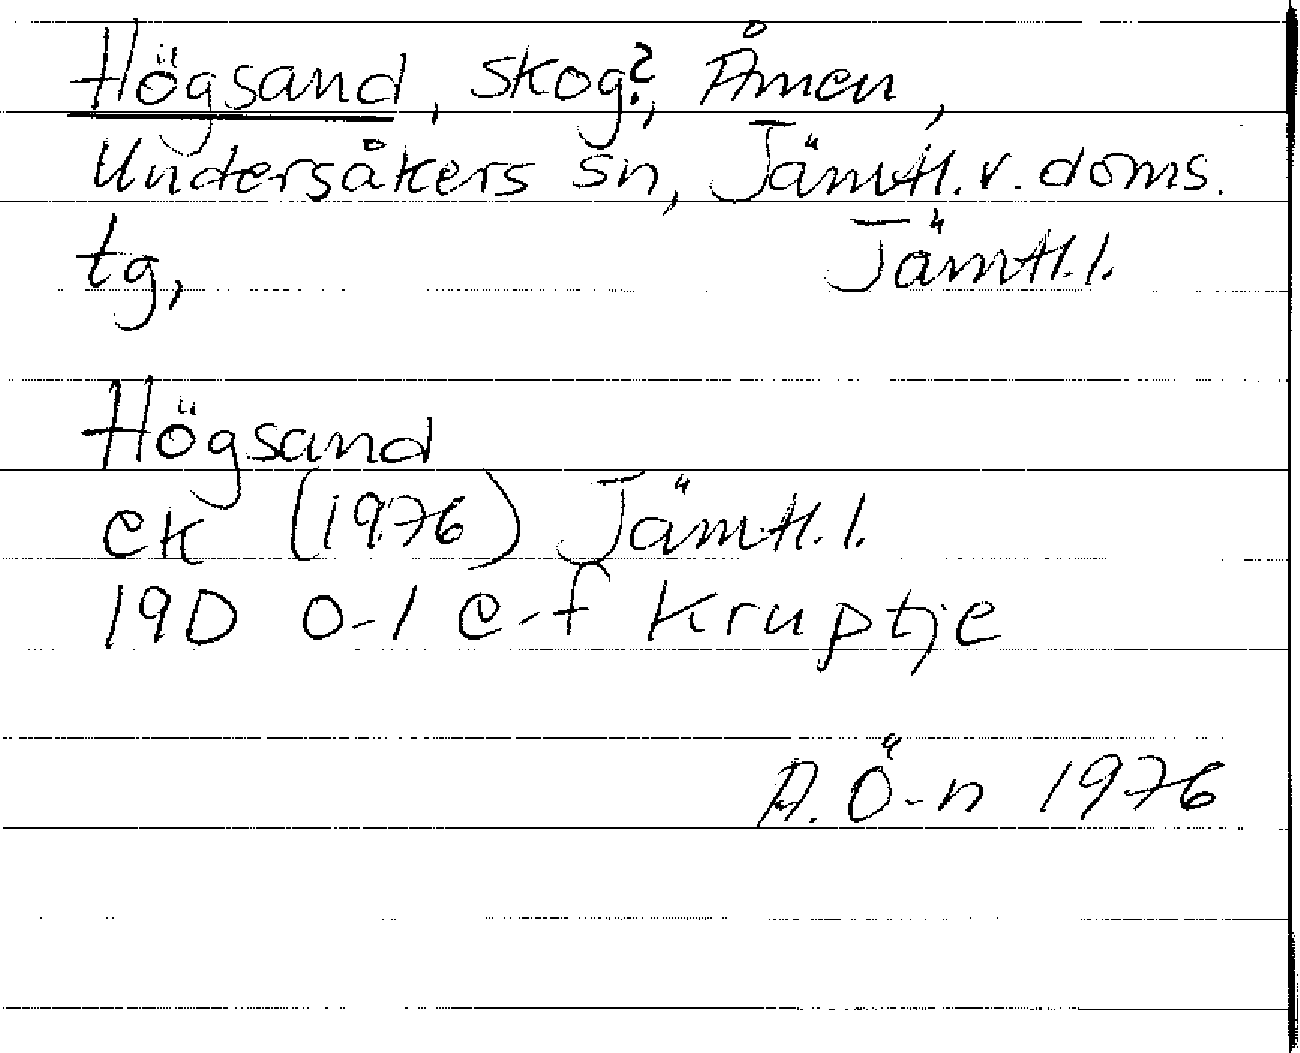 Högsand, skog?, Åmen,
Undersåkers sn, Jämtl. v. doms.
tg, Jämtl. l.
Högsand
ek (1976) Jämtl. l.
19D 0-1 e-f Kruptje
A. Ö-n 1976